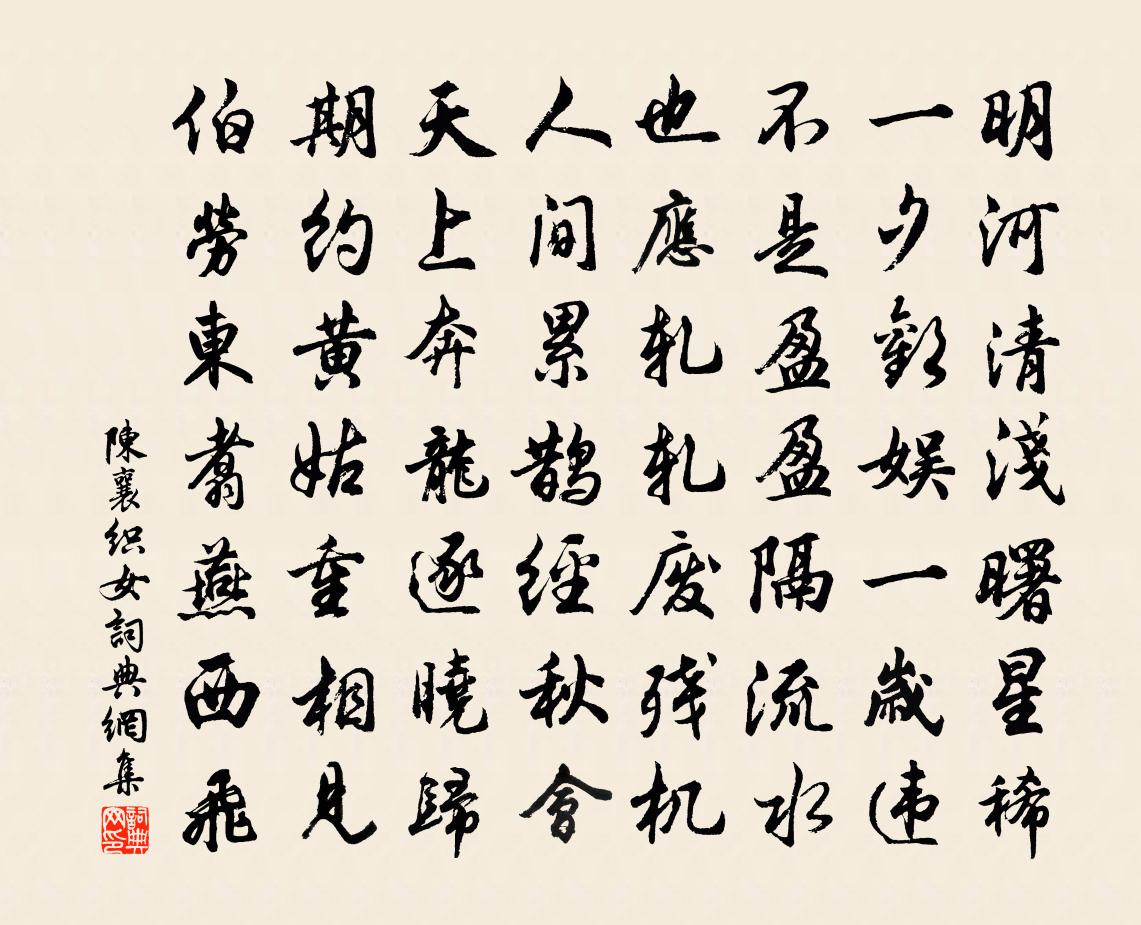 明河清淺曙星稀
一夕歡娛一歲違
不是盈盈隔流水
也應軋軋废残机
人间累鵲經秋會
天上奔龍逐曉歸
期約黄姑重相見
伯勞東翥燕西飛
陳襄织女詞典網集
詞典
网印